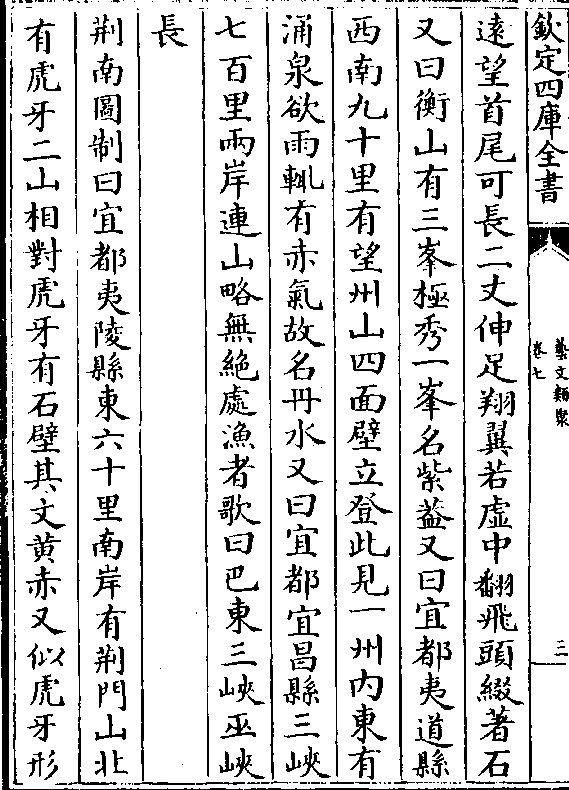 欽定四庫全書
藝文類聚
卷七
三
遠望首尾可長二丈伸足翔翼若虛中翻飛頭綴著石
又曰衡山有三峯極秀一峯名紫蓋又曰宜都夷道縣
西南九十里有望州山四面壁立登此見一州内東有
涌泉欲雨輒有赤氣故名丹水又曰宜都宜昌縣三峽
七百里兩岸連山略無絶處漁者歌曰巴東三峽巫峽
長
荆南圖制曰宜都夷陵縣東六十里南岸有荆門山北
有虎牙二山相對虎牙有石壁其文黄赤又似虎牙形